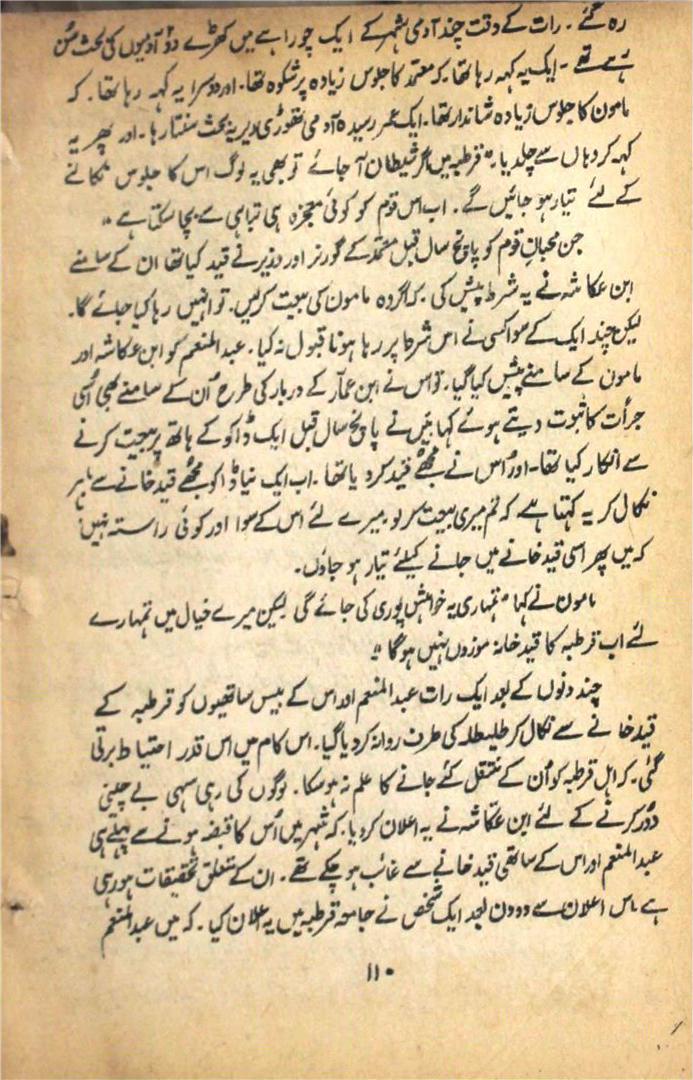 رہ گئے ۔ رات کے وقت چند آدمی شہر کے ایک چوراہے میں کھڑے دو آدمیوں کی بحث سُن
رہے تھے ۔ ایک یہ کہہ رہا تھا ۔ کہ معتمد کا جلوس زیادہ پُر شکوہ تھا ۔ اور دوسرا یہ کہہ رہا تھا ۔ کہ
مامون کا جلوس زیادہ شاندار تھا ۔ ایک عمر رسیدہ آدمی تھوڑی دیر یہ بحث سنتا رہا ۔ اور پھر یہ
کہہ کر وہاں سے چلدیا ۔ " قرطبہ میں اگر شیطان آ جائے تو بھی یہ لوگ اس کا جلوس نکالنے
کے لئے تیار ہو جائیں گے ۔ اب اس قوم کو کوئی معجزہ ہی تباہی سے بچا سکتی ہے "
جن محبانِ قوم کو پانچ سال قبل معتمد کے گورنر اور وزیر نے قید کیا تھا ان کے سامنے
ابن عکاشہ نے یہ شرط پیش کی ۔ کہ اگر وہ مامون کی بیعت کرلیں ۔ تو انہیں رہا کیا جائے گا ۔
لیکن چند ایک کے سوا کسی نے اس شرط پر رہا ہونا قبول نہ کیا ۔ عبدالمنعم کو ابن عکاشہ اور
مامون کے سامنے پیش کیا گیا ۔ تو اس نے ابن عمار کے دربار کی طرح اُن کے سامنے بھی اُسی
جرأت کا ثبوت دیتے ہوئے کہا ۔ میں نے پانچ سال قبل ایک ڈاکو کے ہاتھ پر بیعت کرنے
سے انکار کیا تھا ۔ اور اُس نے مجھے قید کر دیا تھا ۔ اب ایک نیا ڈاکو مجھے قید خانے سے باہر
نکال کر یہ کہتا ہے کہ تم میری بیعت کر لو ۔ میرے لئے اس کے سوا اور کوئی راستہ نہیں
کہ میں پھر اسی قید خانے میں جانے کیلئے تیار ہو جاؤں ۔
مامون نے کہا " تمہاری یہ خواہش پوری کی جائے گی لیکن میرے خیال میں تمہارے
لئے اب قرطبہ کا قید خانہ موزوں نہیں ہو گا "
چند دنوں کے بعد ایک رات عبدالمنعم اور اس کے بیس ساتھیوں کو قرطبہ کے
قید خانے سے نکال کر طلیطلہ کی طرف روانہ کر دیا گیا ۔ اس کام میں اس قدر احتیاط برتی
گئی ۔ کہ اہلِ قرطبہ کو اُن کے منتقل کئے جانے کا علم نہ ہو سکا ۔ لوگوں کی رہی سہی بے چینی
دُور کرنے کے لئے ابن عکاشہ نے یہ اعلان کر دیا ۔ کہ شہر میں اُس کا قبضہ ہونے سے پہلے ہی
عبدالمنعم اور اس کے ساتھی قید خانے سے غائب ہو چکے تھے ۔ ان کے متعلق تحقیقات ہو رہی
ہے ۔ اس اعلان سے دو دن بعد ایک شخص نے جامعہ قرطبہ میں یہ اعلان کیا ۔ کہ میں عبدالمنعم
۱۱۰